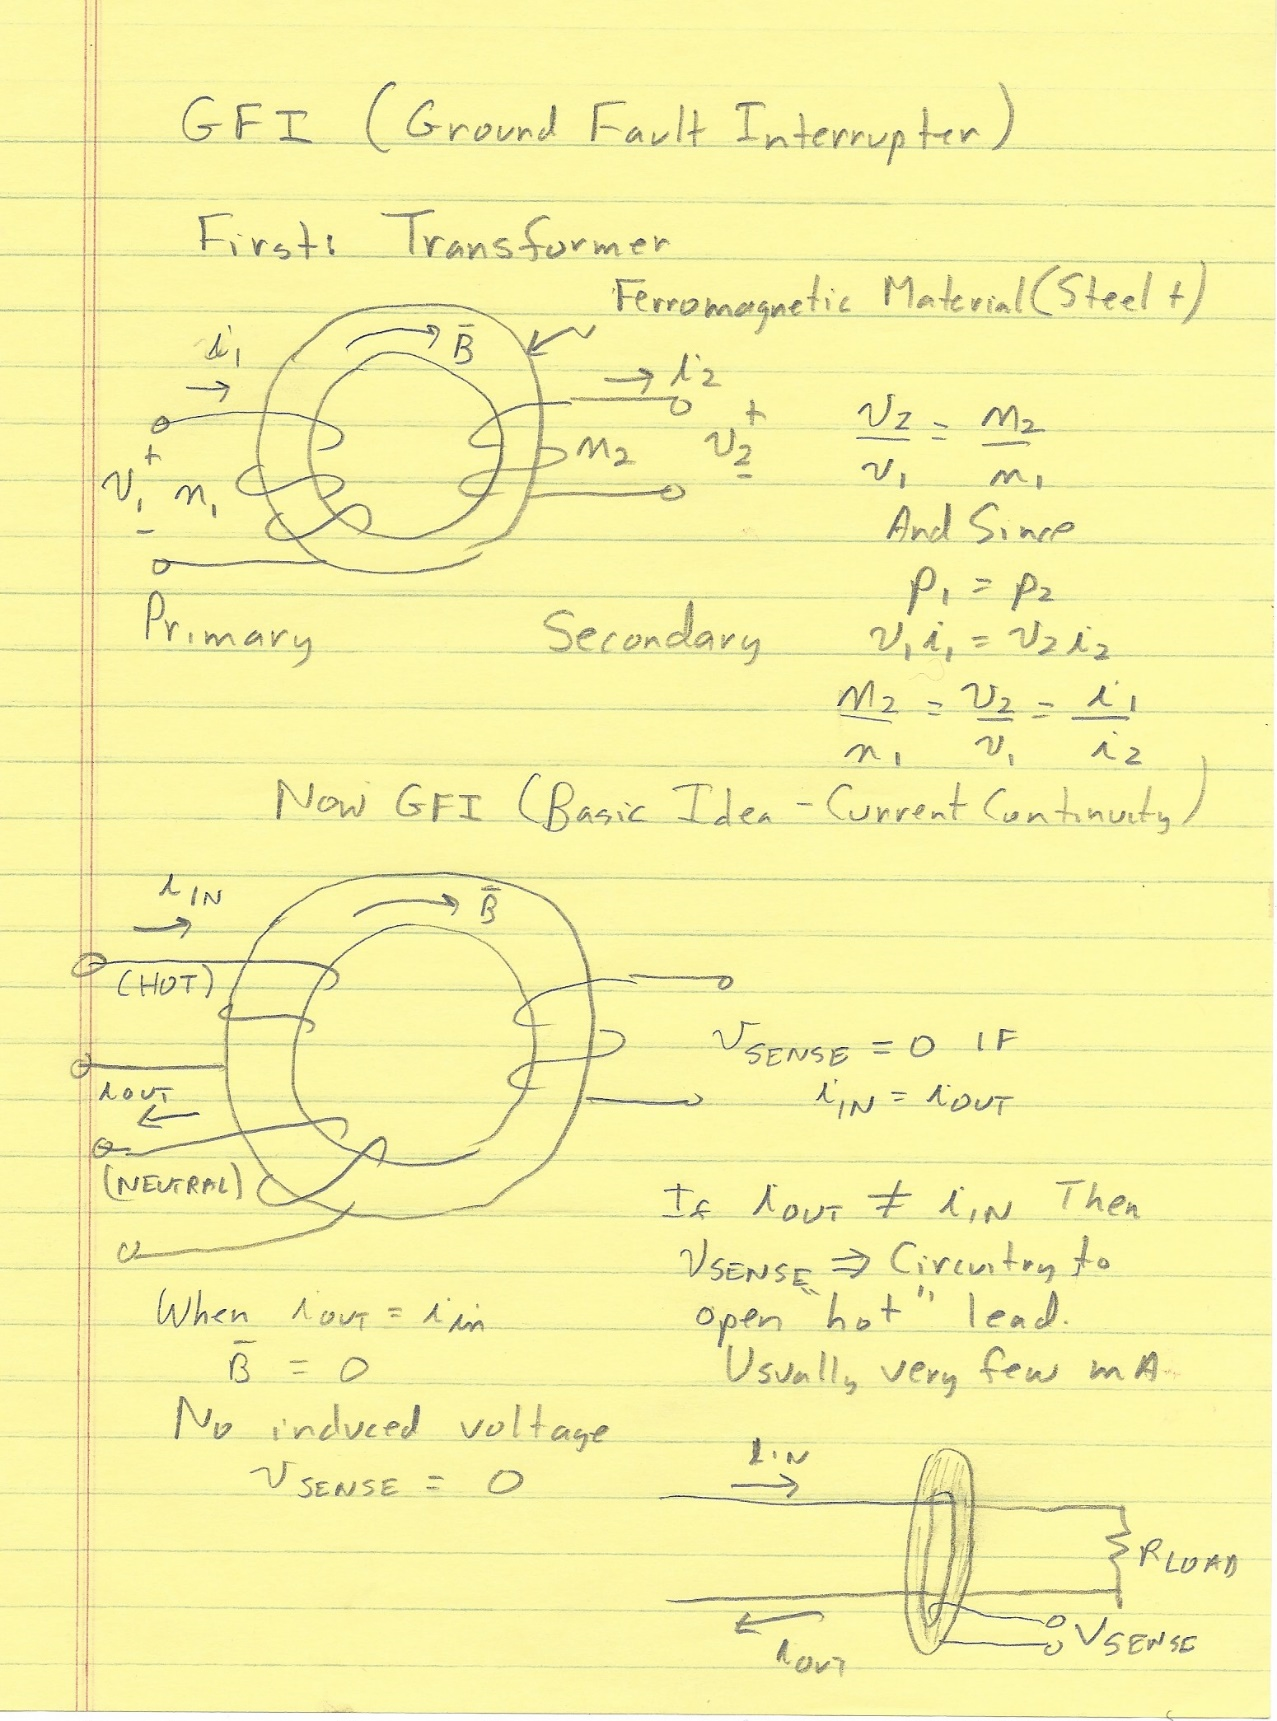 GFI (Ground Fault Interrupter)
First: Transformer
Ferromagnetic Material (Steel +)
i1
B̄
i2
+
v1 n1
-
n2
+
v2
-
v2/v1 = n2/n1
And Since
p1 = p2
v1 i1 = v2 i2
n2/n1 = v2/v1 = i1/i2
Primary
Secondary
Now GFI (Basic Idea - Current Continuity)
iIN
B̄
(HOT)
iOUT
(NEUTRAL)
vSENSE = 0 IF
iIN = iOUT
If iOUT ≠ iIN Then
vSENSE ⇒ Circuitry to
open "hot" lead.
Usually very few mA
When iOUT = iin
B̄ = 0
No induced voltage
vSENSE = 0
iIN
RLOAD
VSENSE
iOUT